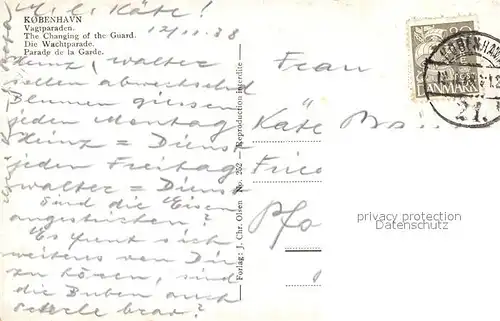 M. l. Käte!
12/11.38
KØBENHAVN
Vagtparaden.
The Changing of the Guard.
Die Wachtparade.
Parade de la Garde.
Heinz, Walter
sollen abwechselnd
Blumen giessen
jeden Montag
Heinz = Dienst
jeden Freitag
Walter = Dienst
Sind die Eisen
angestrichen?
Es freut sich
weiteres von Dir
zu hören, sind
die Buben auch
brav?
Forlag: J. Chr. Olsen No. 252 — Reproduction interdite —
Frau
Käte
Pfo
KØBENHAVN
DANMARK
21.
privacy protection
Datenschutz